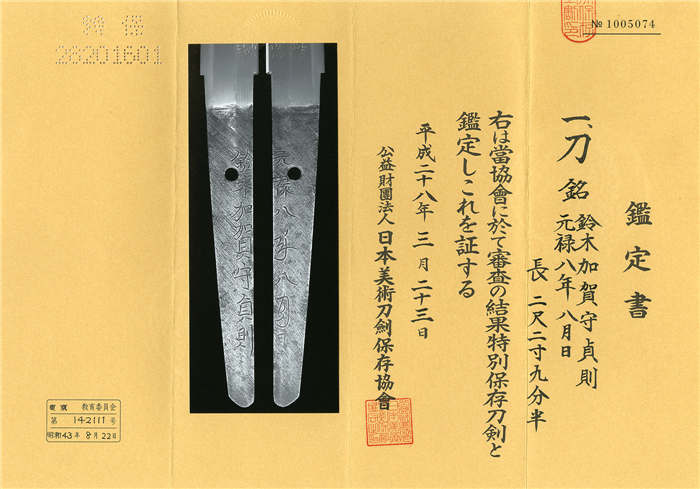 特保
28201601
№ 1005074
鑑定書
一、刀 銘 鈴木加賀守貞則
元禄八年八月日
長 二尺二寸九分半
右は當協會に於て審査の結果特別保存刀剣と
鑑定しこれを証する
平成二十八年 三月 二十三日
公益財團法人 日本美術刀剣保存協會
鈴木加賀守貞則
元禄八年八月日
東京 教育委員会
第 142111 号
昭和43年 8月22日